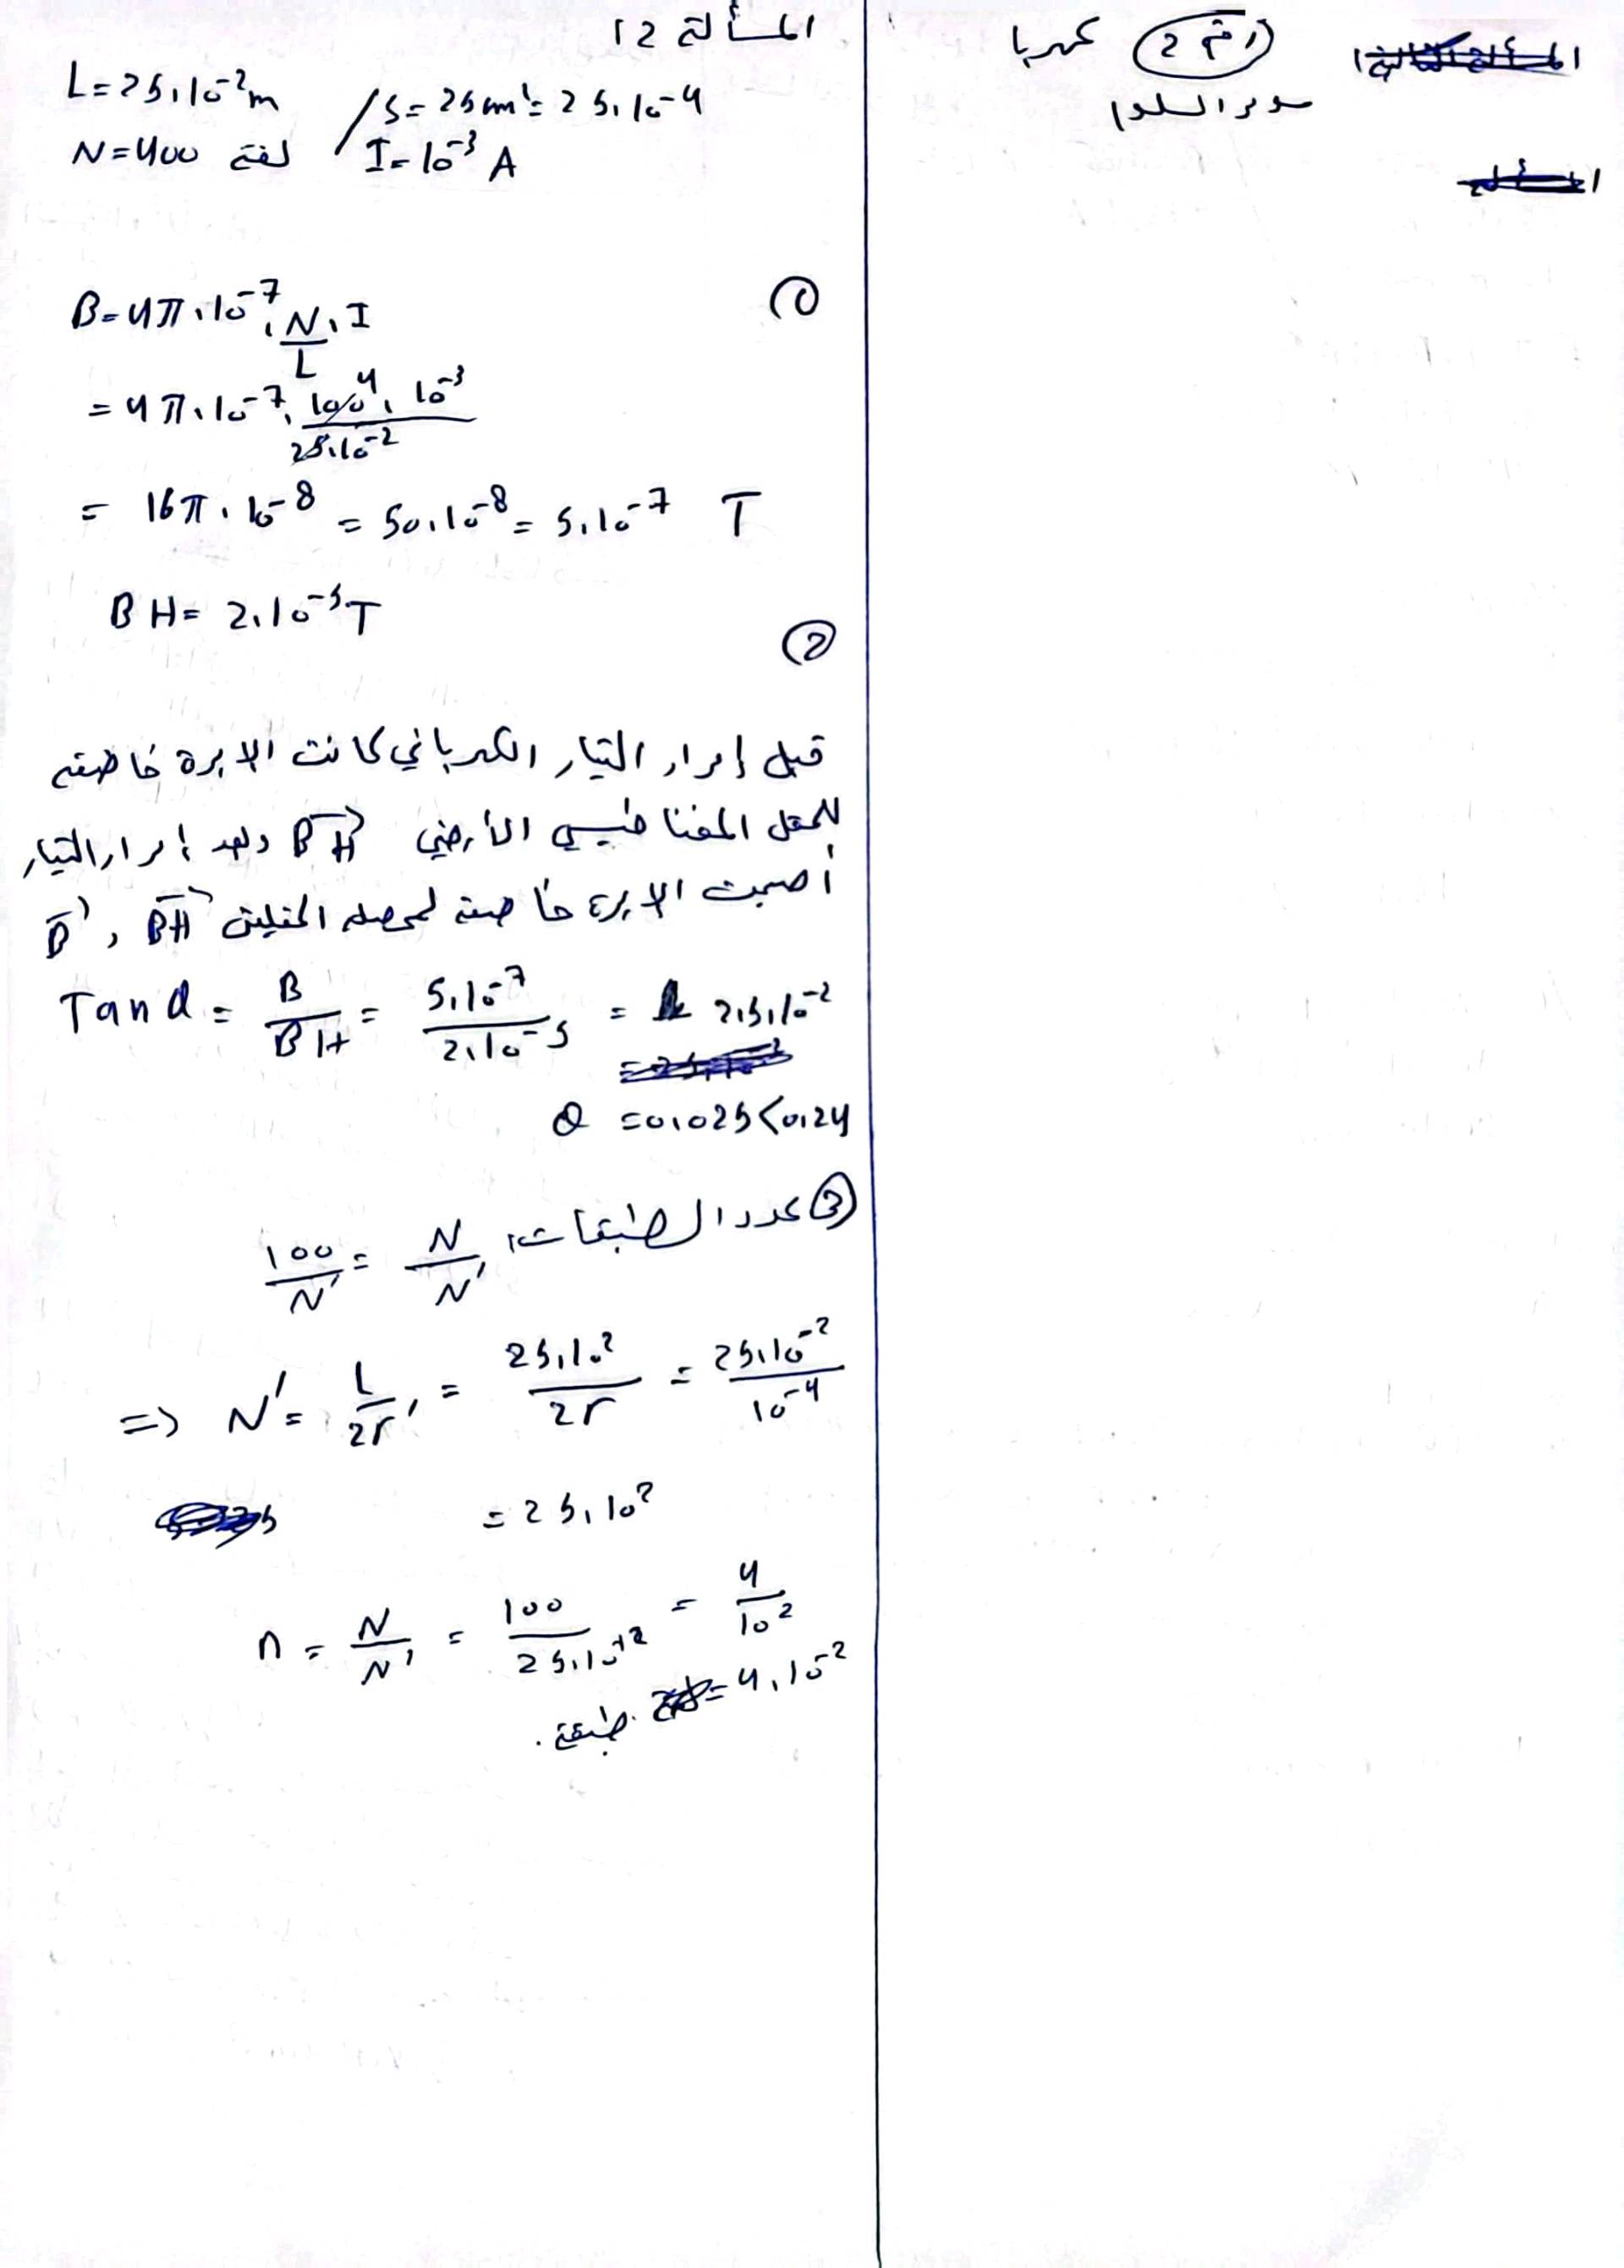 رقم 2 كهربا
المسألة 12
L=25.10^-2 m / S=25cm²=25.10^-4
N=400 لفة / I=10^-3 A
①
B=4π.10^-7.N/L.I
=4π.10^-7.100^4.10^-3/25.10^-2
=16π.10^-8=50.10^-8=5.10^-7 T
BH=2.10^-5T
②
قبل إمرار التيار الكهربائي كانت الابرة خاضعة
للحقل المغناطيسي الأرضي BH وبعد إمرار التيار
أصبحت الابرة خاضعة لمحصلة الحقلين BH , B
Tan α=B/BH=5.10^-7/2.10^-5=2,5.10^-2
θ=0,025<0,24
③ عدد الطبقات: N/N'=100/N'
=> N'=L/2r'=25.10^2/2r=25.10^-2/10^-4
=25.10^2
n=N/N'=100/25.10^+2=4/10^2
=4.10^-2 طبقة.